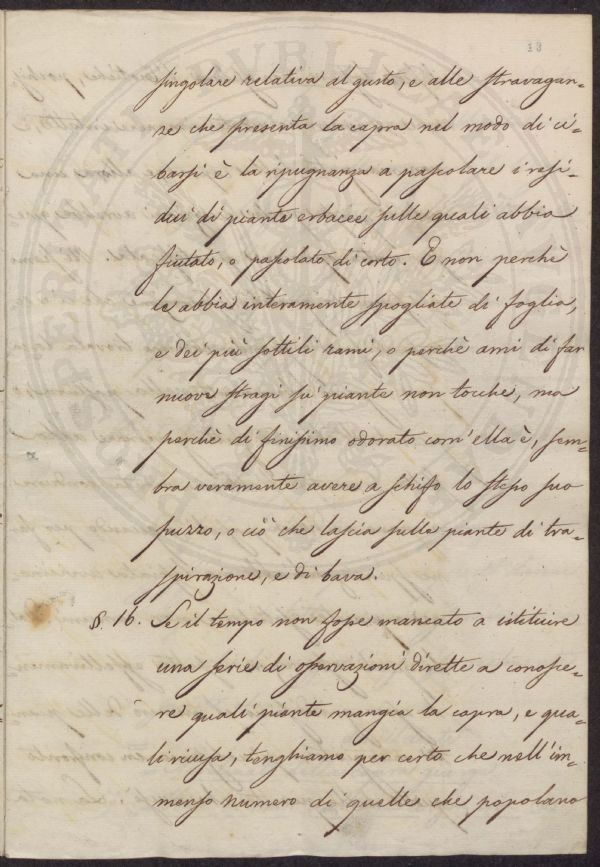 13
singolare relativa al gusto, e alle stravagan-
ze che presenta la capra nel modo di ci-
barsi è la ripugnanza a pascolare i resi-
dui di piante erbacee sulle quali abbia
fiutato, o pascolato di corto. E non perchè
le abbia interamente spogliate di foglia,
e dei più sottili rami, o perchè ami di far
nuove stragi su' piante non tocche, ma
perchè di finissimo odorato com' ella è, sem-
bra veramente avere a schifo lo stesso suo
puzzo, o ciò che lascia sulle piante di tra-
spirazione, e di bava.
§. 16. Se il tempo non fosse mancato a istituire
una serie di osservazioni dirette a conosce-
re quali piante mangia la capra, e qua-
li ricusa, tenghiamo per certo che nell' im-
menso numero di quelle che popolano